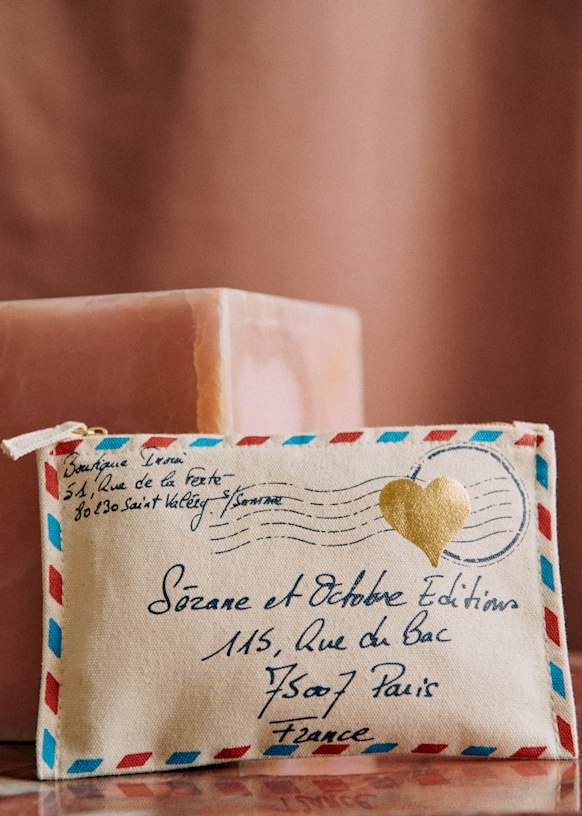 Boutique
51, Rue de la Ferté
80230 Saint Valéry s/Somme
Sézane et Octobre Editions
115, Rue du Bac
75007 Paris
France